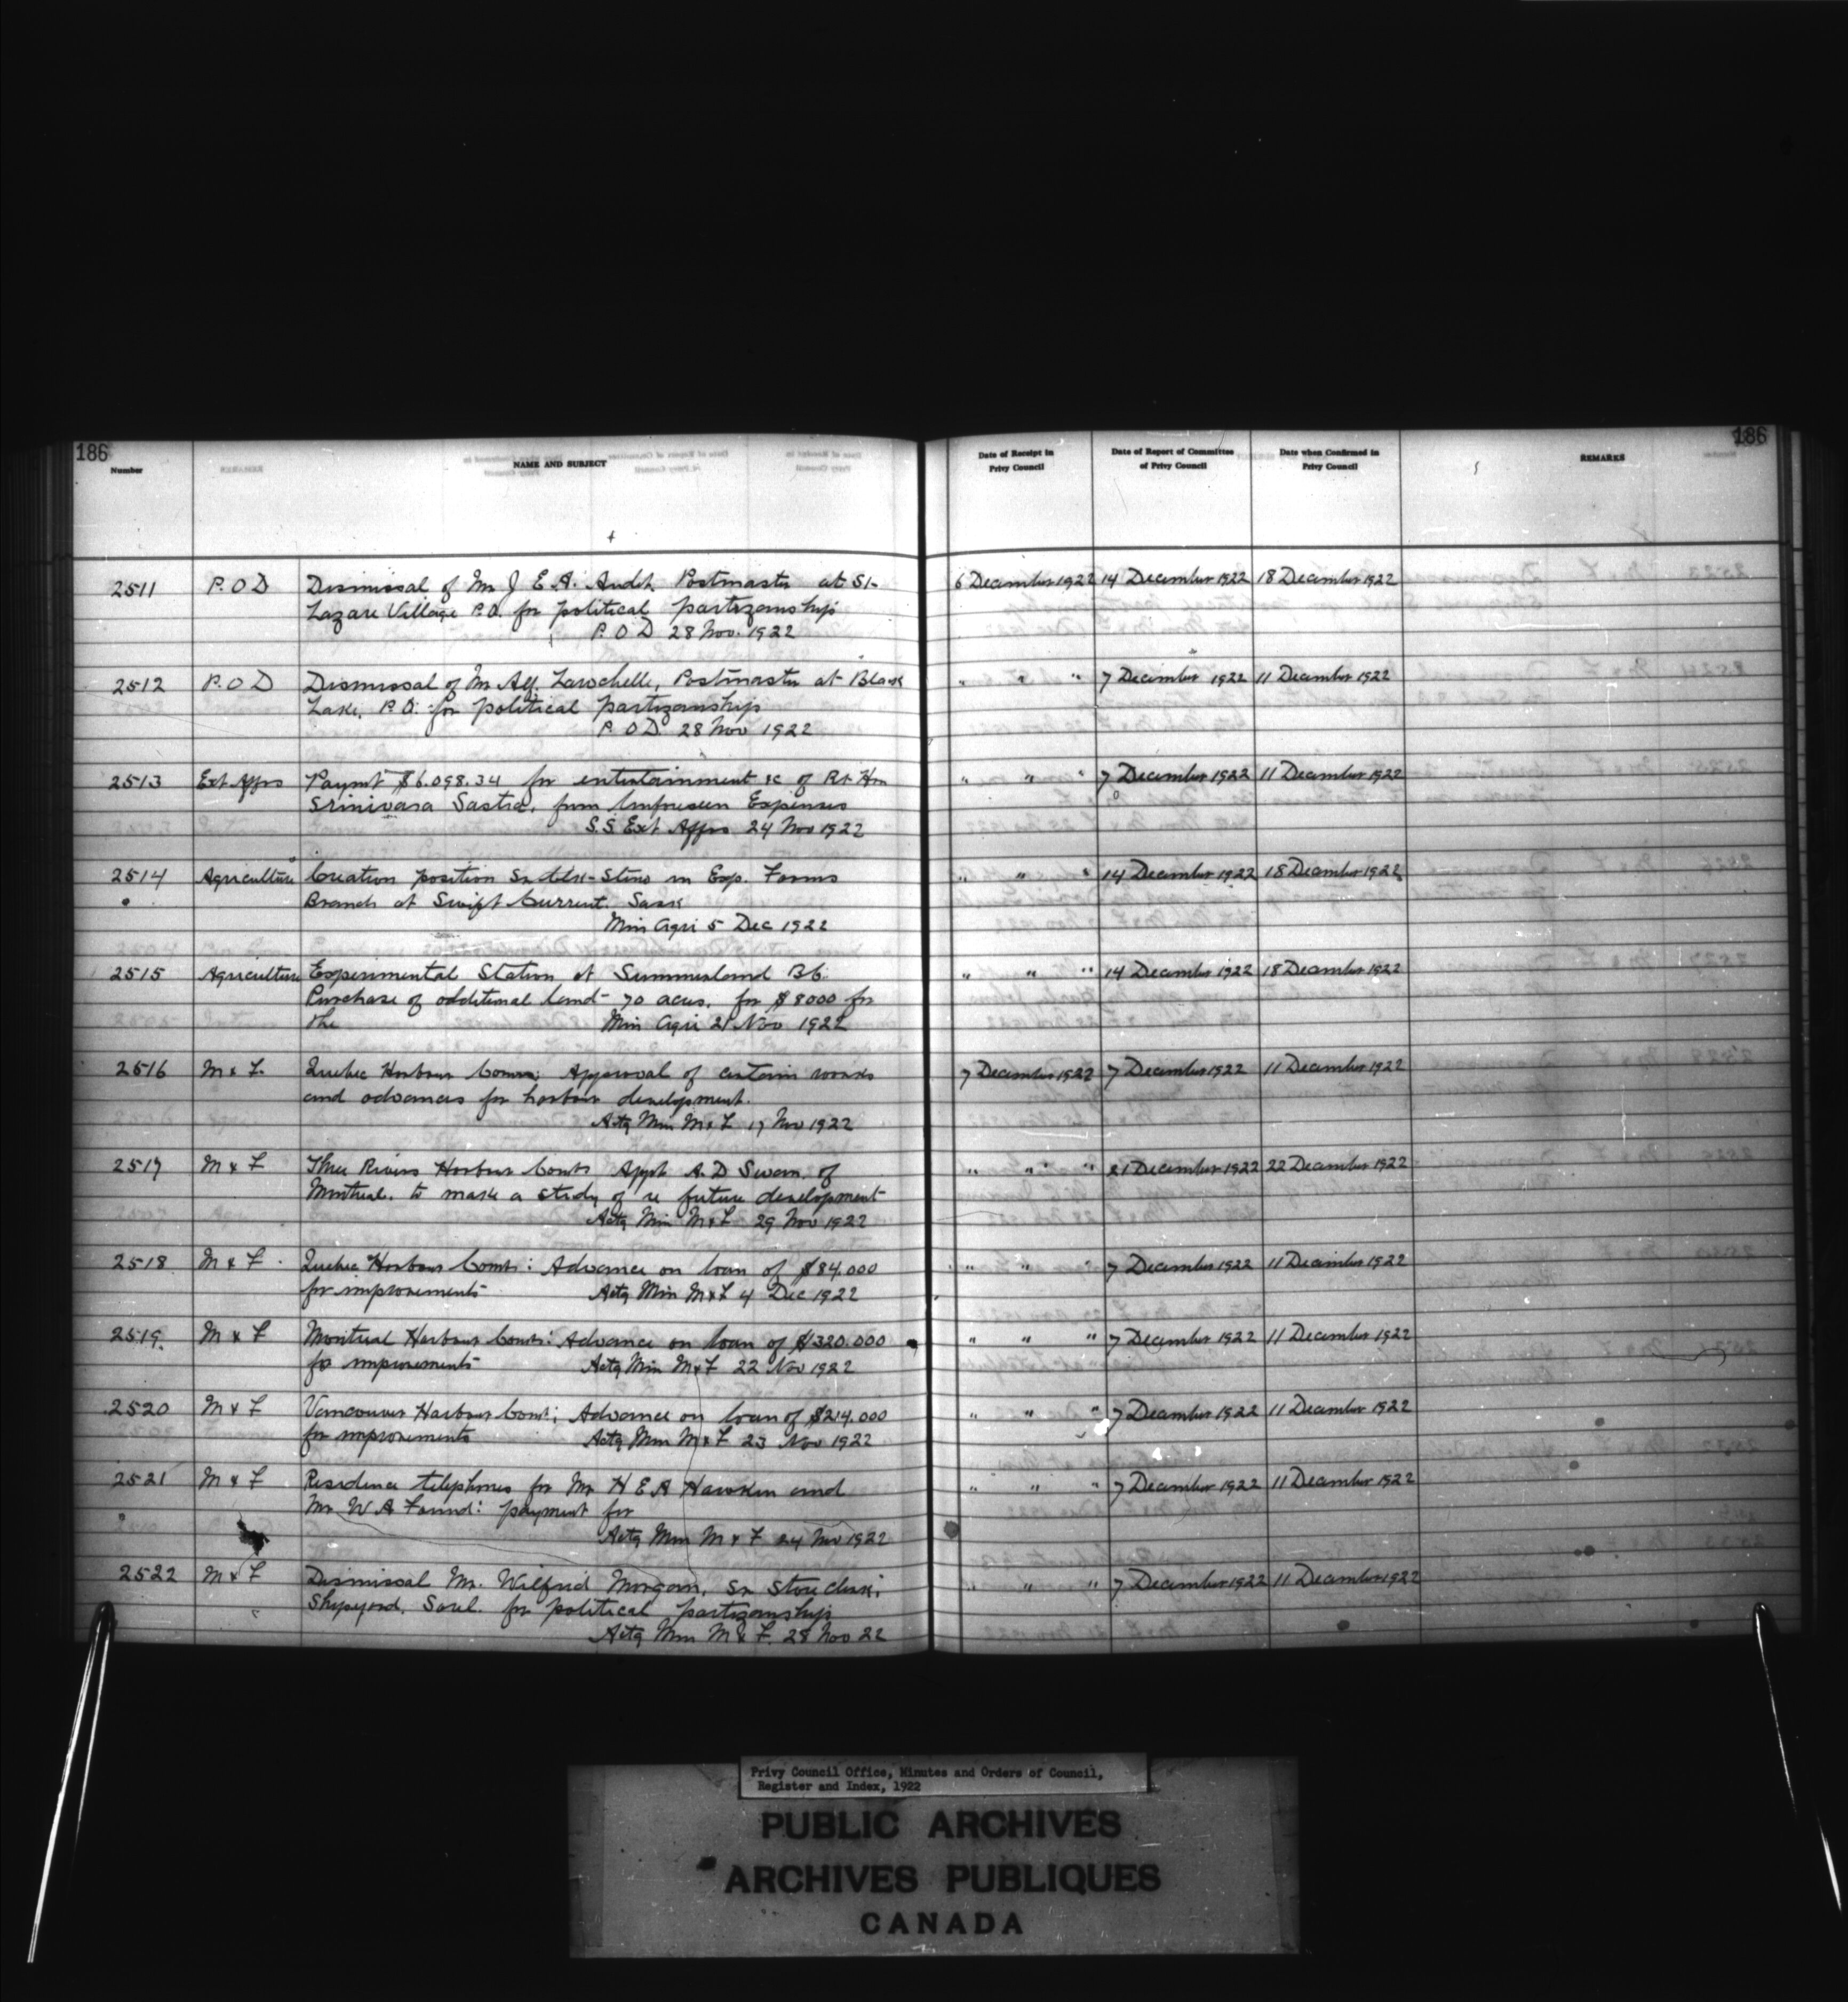 186
186
Number
NAME AND SUBJECT
Date of Receipt in Privy Council
Date of Report of Committee of Privy Council
Date when Confirmed in Privy Council
REMARKS
2511 P.O D Dismissal of Mr J E. A. Audet. Postmaster at St- 6 December 1922 14 December 1922 18 December 1922
Lazare Village P.Q. for political partizanship
P.O D 28 Nov. 1922
2512 P.O D Dismissal of Mr Alf. Larochelle, Postmaster at Black " " " 7 December 1922 11 December 1922
Lake, P.Q. for political partizanship
P. O D. 28 Nov 1922
2513 Ext Affrs Paymt $6.098.34 for entertainment &c of Rt Hon " " " 7 December 1922 11 December 1922
Srinivasa Sastri, from Unforeseen Expenses
S.S. Ext Affrs 24 Nov 1922
2514 Agriculture Creation position Sr Clk-Steno in Exp. Farms " " " 14 December 1922 18 December 1922
Branch at Swift Current. Sask
Min Agri 5 Dec 1922
2515 Agriculture Experimental Station at Summerland B.C. " " " 14 December 1922 18 December 1922
Purchase of additional land - 70 acres. for $8000 for
the Min Agri 21 Nov 1922
2516 M & F. Quebec Harbour Comrs; Approval of certain works 7 December 1922 7 December 1922 11 December 1922
and advances for harbour development.
Actg Min M & F 17 Nov 1922
2517 M & F Three Rivers Harbour Comrs Appt A. D Swan, of " " " 21 December 1922 22 December 1922
Montreal. to make a study of re future development
Actg Min M & F 29 Nov 1922
2518 M & F. Quebec Harbour Comrs: Advance on loan of $84.000 " " " 7 December 1922 11 December 1922
for improvements Actg Min M & F 4 Dec 1922
2519. M & F Montreal Harbour Comrs: Advance on loan of $320.000 " " " 7 December 1922 11 December 1922
for improvements Actg Min M & F 22 Nov 1922
2520 M & F Vancouver Harbour Comrs; Advance on loan of $214.000 " " " 7 December 1922 11 December 1922
for improvements Actg Min M & F 23 Nov 1922
2521 M & F Residence telephones for Mr H E A Hawken and " " " 7 December 1922 11 December 1922
Mr W A Found: payment for
Actg Min M & F 24 Nov 1922
2522 M & F Dismissal Mr. Wilfrid Morgan, Sr store clerk, " " " 7 December 1922 11 December 1922
Shipyard, Sorel. for political partizanship
Actg Min M & F. 28 Nov 22
Privy Council Office, Minutes and Orders of Council,
Register and Index, 1922
PUBLIC ARCHIVES
ARCHIVES PUBLIQUES
CANADA